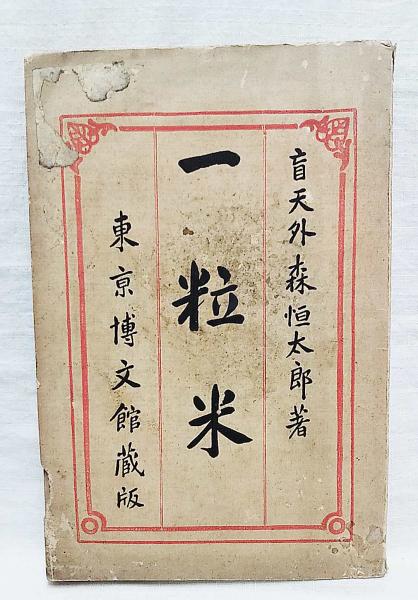 盲天外森恒太郎著
一粒米
東京博文館蔵版